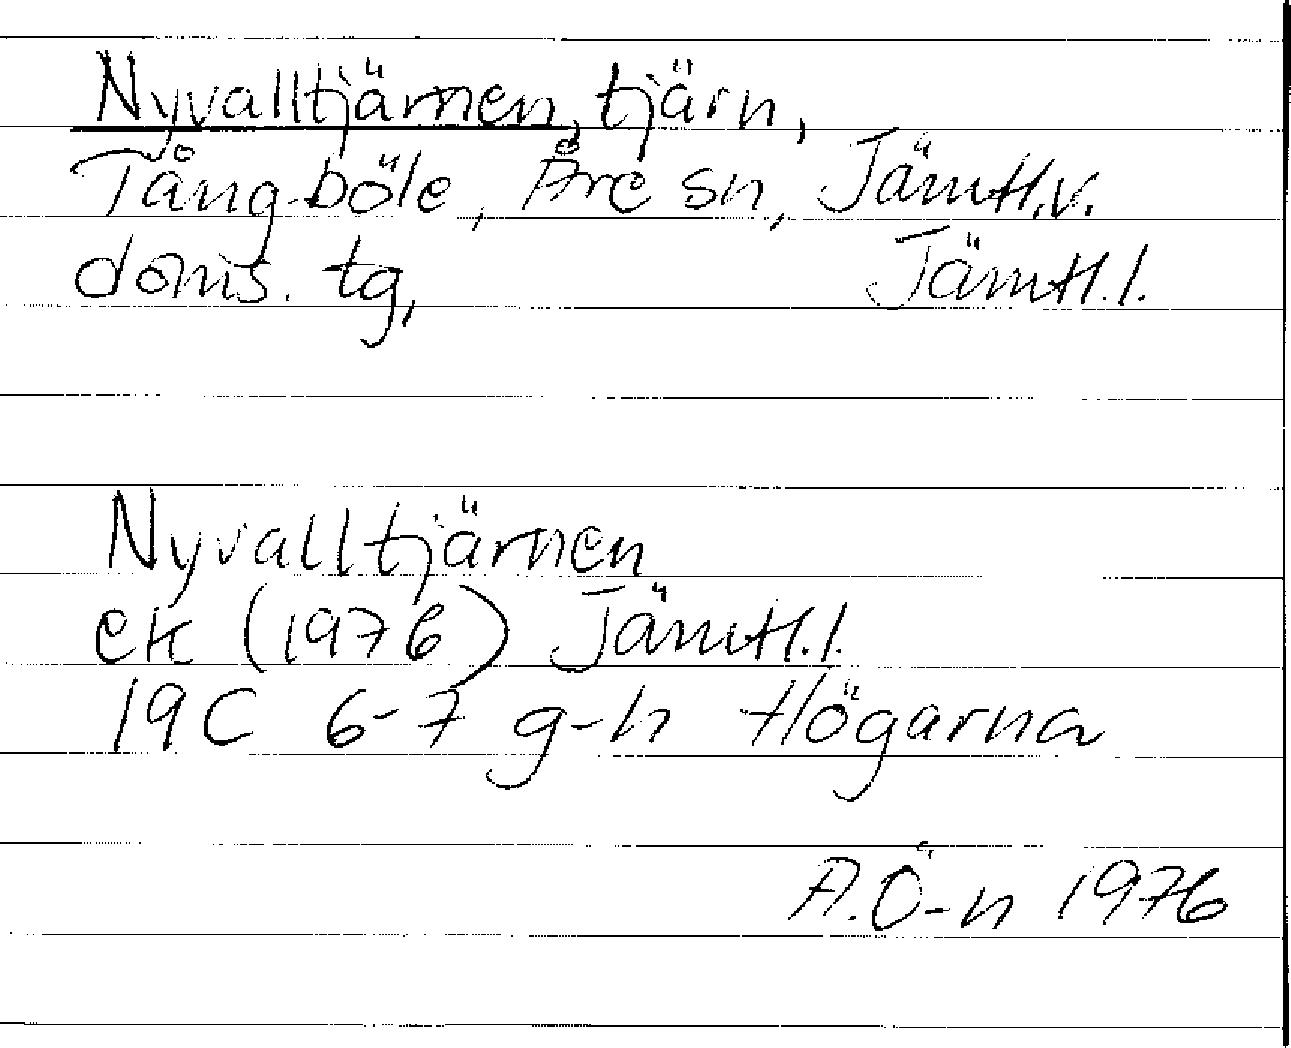 Nyvalltjärnen, tjärn,
Tångböle, Åre sn, Jämtl.v.
doms. tg, Jämtl.l.
Nyvalltjärnen
ek (1976) Jämtl.l.
19C 6-7 g-h Högarna
A.Ö-n 1976